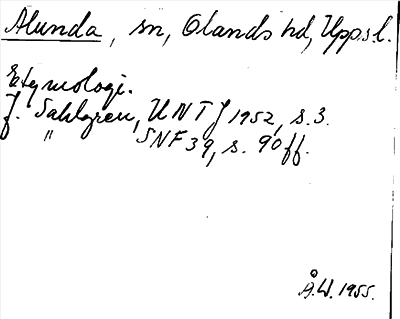 Alunda, sn, Olands hd, Upps.l.
Etymologi.
J. Sahlgren, UNT 1952, s. 3.
" SNF 39, s. 90 ff.
Å.W. 1955.